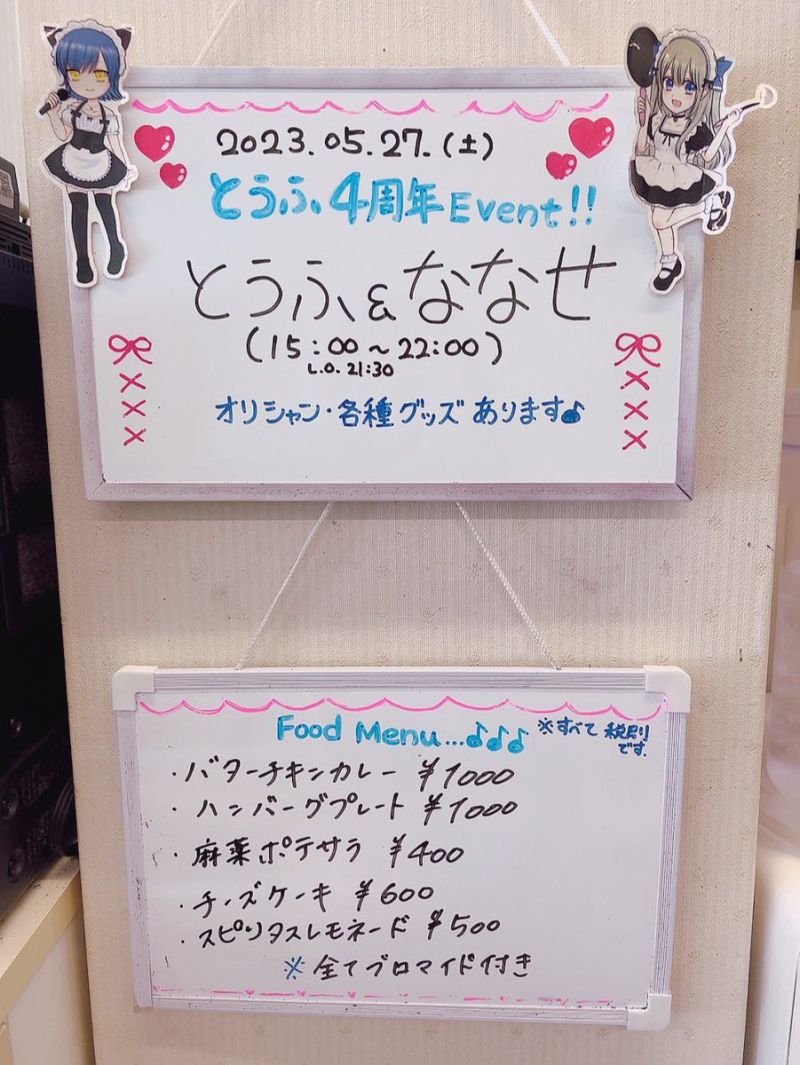 2023.05.27.(土)
とうふ4周年Event!!
とうふ&ななせ
(15:00~22:00)
L.O. 21:30
オリシャン・各種グッズあります♪
Food Menu...♪♪♪
※すべて税別
です。
・バターチキンカレー ¥1000
・ハンバーグプレート ¥1000
・麻薬ポテサラ ¥400
・チーズケーキ ¥600
・スピリタスレモネード ¥500
※全てブロマイド付き